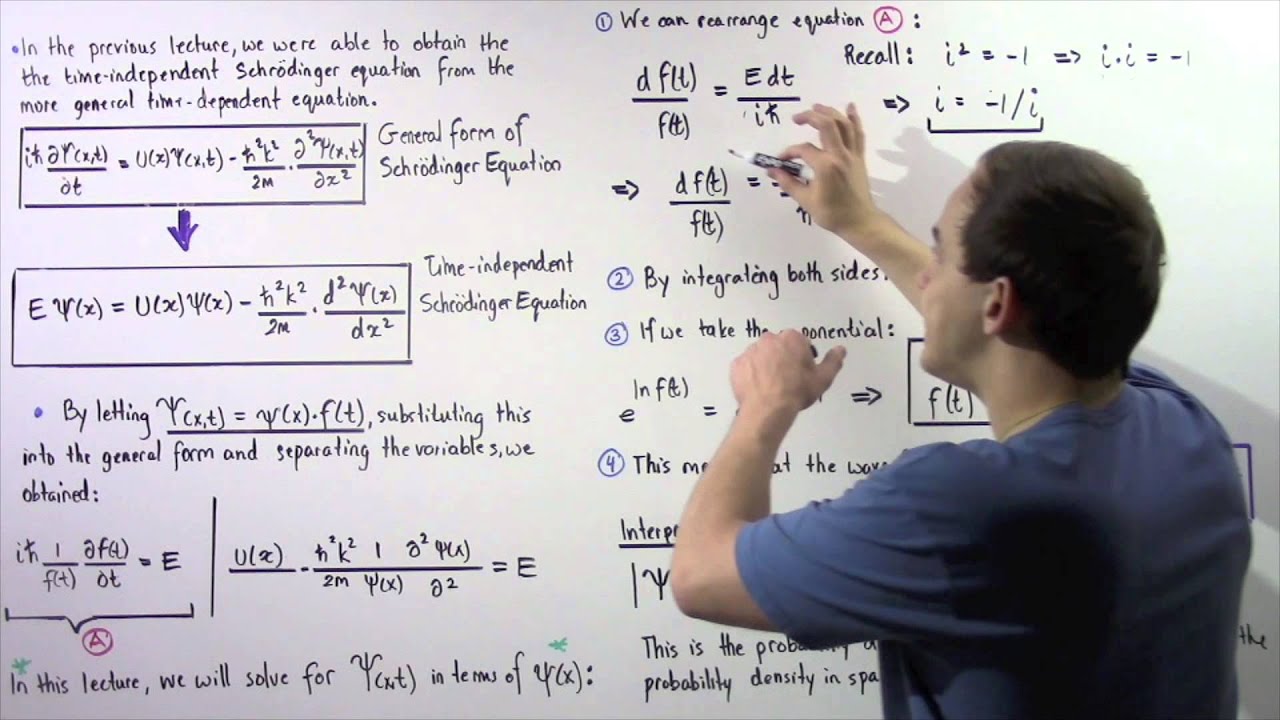 •In the previous lecture, we were able to obtain the
the time-independent Schrödinger equation from the
more general time-dependent equation.
iħ ∂Ψ(x,t)/∂t = U(x)Ψ(x,t) - ħ²k²/2m · ∂²Ψ(x,t)/∂x²
General form of
Schrödinger Equation
E Ψ(x) = U(x)Ψ(x) - ħ²k²/2m · d²Ψ(x)/dx²
Time-independent
Schrödinger Equation
• By letting Ψ(x,t) = ψ(x)·f(t), substituting this
into the general form and separating the variables, we
obtained:
iħ 1/f(t) ∂f(t)/∂t = E
U(x) - ħ²k²/2m 1/Ψ(x) ∂²Ψ(x)/∂² = E
A
* *
In this lecture, we will solve for Ψ(x,t) in terms of Ψ(x):
① We can rearrange equation A :
Recall: i² = -1 => i.i = -1
d f(t)/f(t) = E dt/iħ
=> i = -1/i
=> d f(t)/f(t) =
② By integrating both sides
③ If we take the exponential:
e^ln f(t) = => f(t)
④ This at the
|Ψ
This is the the
probability density in